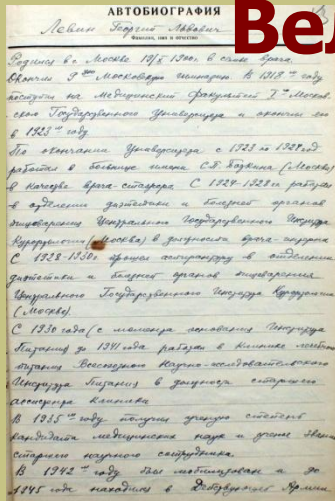 Вел
АВТОБИОГРАФИЯ
Левин Георгий Львович
Фамилия, имя и отчество
Родился в г. Москве 19/X 1900г. в семье врача.
Окончил Московскую гимназию. В 1918 году
поступил на Медицинский факультет I Москов-
ского Государственного Университета и окончил его
в 1923 году.
По окончании Университета с 1923 по 1924 год
работал в больнице имени С.П. Боткина (Москва)
в качестве врача-стажера С 1924-1928гг работал
в отделении диэтетики и болезней органов
пищеварения Центрального Государственного Института
Курортологии (Москва) в должности врача-
С 1928-1930г прошел аспирантуру в отделении
диэтетики и болезней органов пищеварения
Центрального Государственного Института Курортологии
(Москва).
С 1930 года (с момента основания Института
Питания до 1941 года работал в Клинике лечебного
питания Всесоюзного Научно-исследовательского
Института Питания в должности старшего
ассистента клиники
В 1935 году получил ученую степень
кандидата медицинских наук и ученое звание
старшего научного сотрудника.
В 1942 году был мобилизован и до
1945 года находился в Действующей Армии